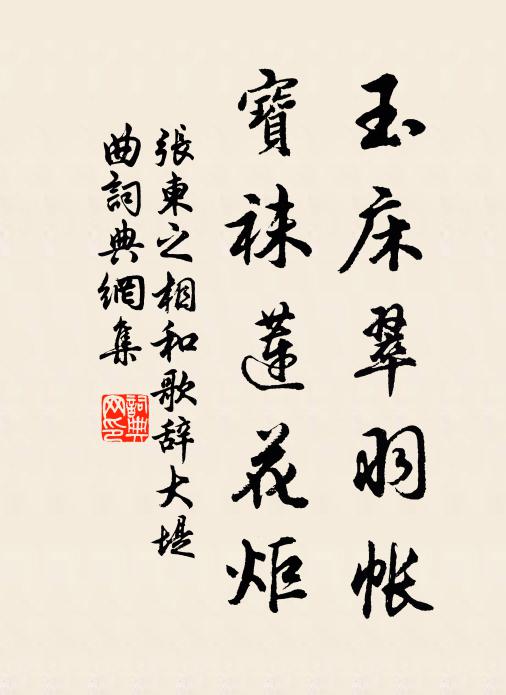 玉床翠羽帐
寶袜蓮花炬
張東之相和歌辞大堤
曲詞典網集
詞典
网印